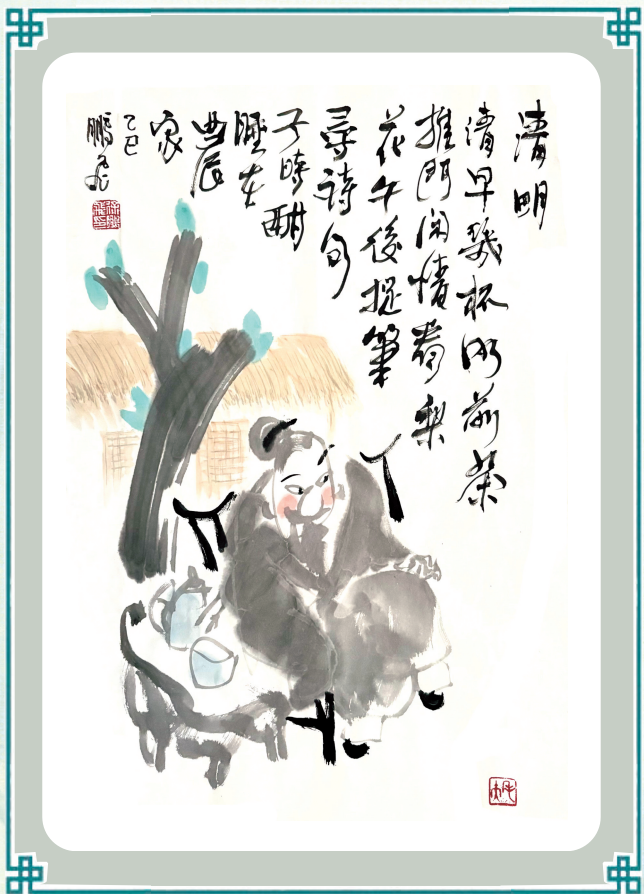 清明
清早幾杯明前茶
推門閑情看梨
花午後提筆
尋詩句
子時酣
睡在
農
家
乙巳
鵬飛